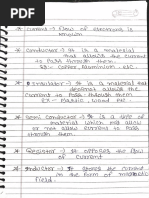 * Current → flow of electrons is
known
* Conductor → It is a material
that allow the current
to Pass through them.
Ex - Copper, Aluminium - etc.
* Insulator → It is a material that
does not allow the
Current to Pass through them
Ex - Plastic, Wood
* Semi Conductor → It is a type of
material which may allow
or not allow current to Pass
through them.
* Resistor → It opposes the flow
of Current
* Inductor → It stores the Current
in the form of magnetic
field.